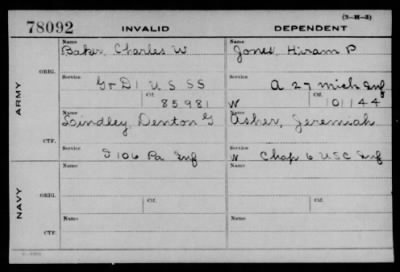 (3-M-3)
78092 INVALID DEPENDENT
Name Name
Baker, Charles W Jones, Hiram P
ARMY
ORIG.
Service Service
G + D 1 U S SS A 27 Mich Inf
Ctf. Ctf.
85981 W 101144
Name Name
Lindley, Denton G Asher, Jeremiah
CTF.
Service Service
I 106 Pa Inf W Chap 6 USC Inf
NAVY
ORIG.
Name Name
Service Ctf. Service Ctf.
CTF.
Name Name